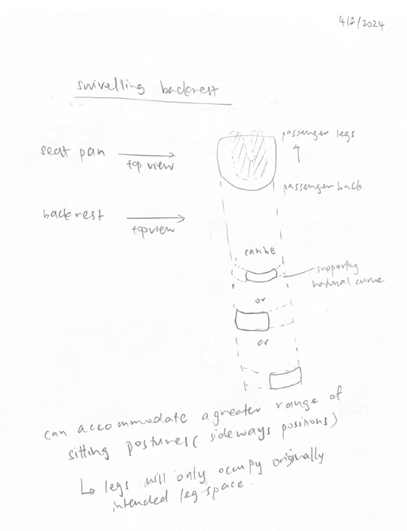 4/2/2024
swivelling backrest
passenger legs
seat pan
top view
passenger back
backrest
top view
can be
supporting
natural curve
or
or
can accommodate a greater range of
sitting postures (sideways positions)
↳ legs will only occupy originally
intended leg space.